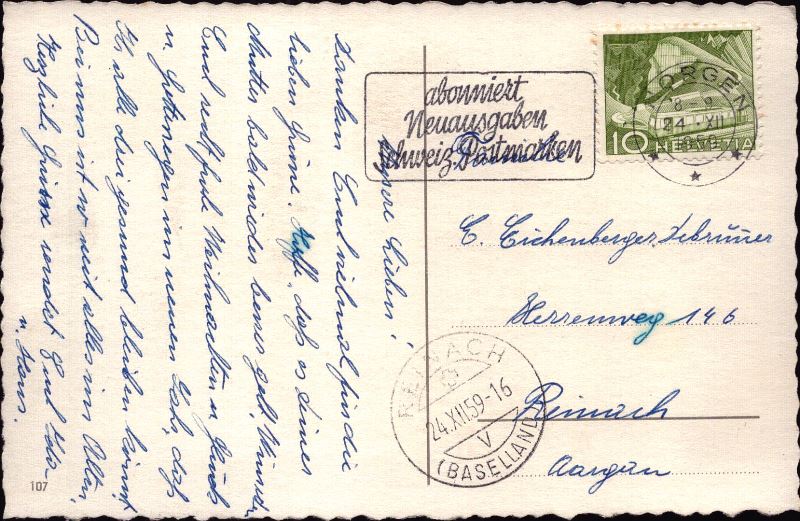 Unsere Lieben!
Danken Euch vielmal für die
lieben Grüsse. Hoffe, dass es Deiner
Mutter bald wieder besser geht, Wünschen
Euch recht frohe Weihnachten u. Glück
u. Gottsegen im neuen Jahr, dass
Ihr alle drei gesund bleiben könnt.
Bei uns ist so weit alles im Alten.
Herzliche Grüsse sendet Euch
u. Hans.
107
abonniert
Neuausgaben
Schweiz. Postmarken
HORGEN
24. XII
1959
10 HELVETIA
Familie
E. Eichenberger, Debrunner
Herrenweg 146
Reinach
Aargau
REINACH
24.XII.59-16
V
(BASELLAND)